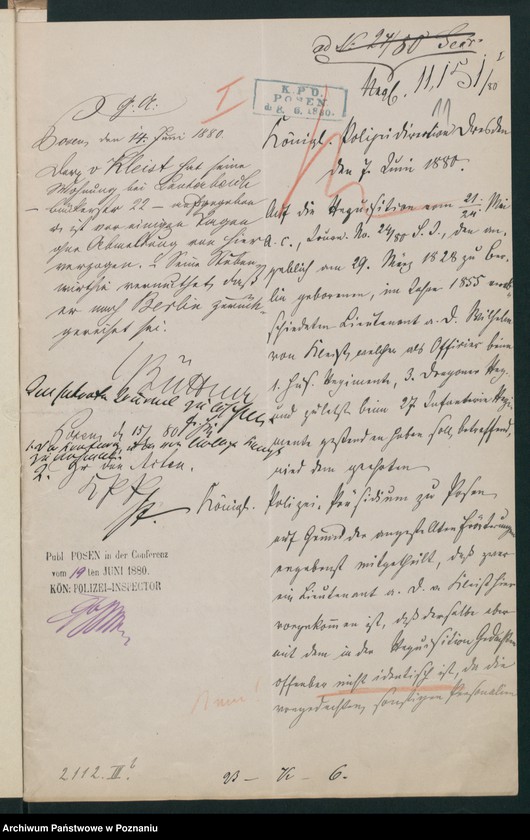 ad № 24/80 Secr.
I
K. P. D.
POSEN.
8. 6. 1880.
Königl. Polizeidirektion Dresden
den 7. Juni 1880.
Auf die Requisition vom 21./24. Mai
a. c., Journ. No. 24/80 S. I., den an-
geblich am 29. März 1828 zu Ber-
lin geborenen, im Jahre 1855 verab-
schiedeten Lieutenant a. D. Wilhelm
von Kleist, welcher als Officier beim
1. Hus. Regimente, 3. Dragoner Reg.
und zuletzt beim 27. Infanterie Regi-
mente gestanden haben soll, betreffend,
wird dem geehrten
Königl. Polizei-Präsidium zu Posen
auf Grund der angestellten Erörterungen
ergebenst mitgetheilt, daß zwar
ein Lieutenant a. D. v. Kleist hier
vorgekommen ist, daß derselbe aber
mit dem in der Requisition Gedachten
offenbar nicht identisch ist, da die
vorgedachten sonstigen Personalien
Posen, den 14. Juni 1880.
Herr v. Kleist hat seine
Wohnung bei
22 – aufgegeben
u. ist vor einigen Tagen
ohne Abmeldung von hier
verzogen. Seine Stuben-
wirthin vermuthet, daß
er nach Berlin zurück-
gereist sei.
Posen, d. 15/6 80.
2. Zu den Acten.
K. P. P.
Publ POSEN in der Conferenz
vom 19ten JUNI 1880.
KÖN: POLIZEI-INSPECTOR
2112. III.
B – K – 6.
Archiwum Państwowe w Poznaniu